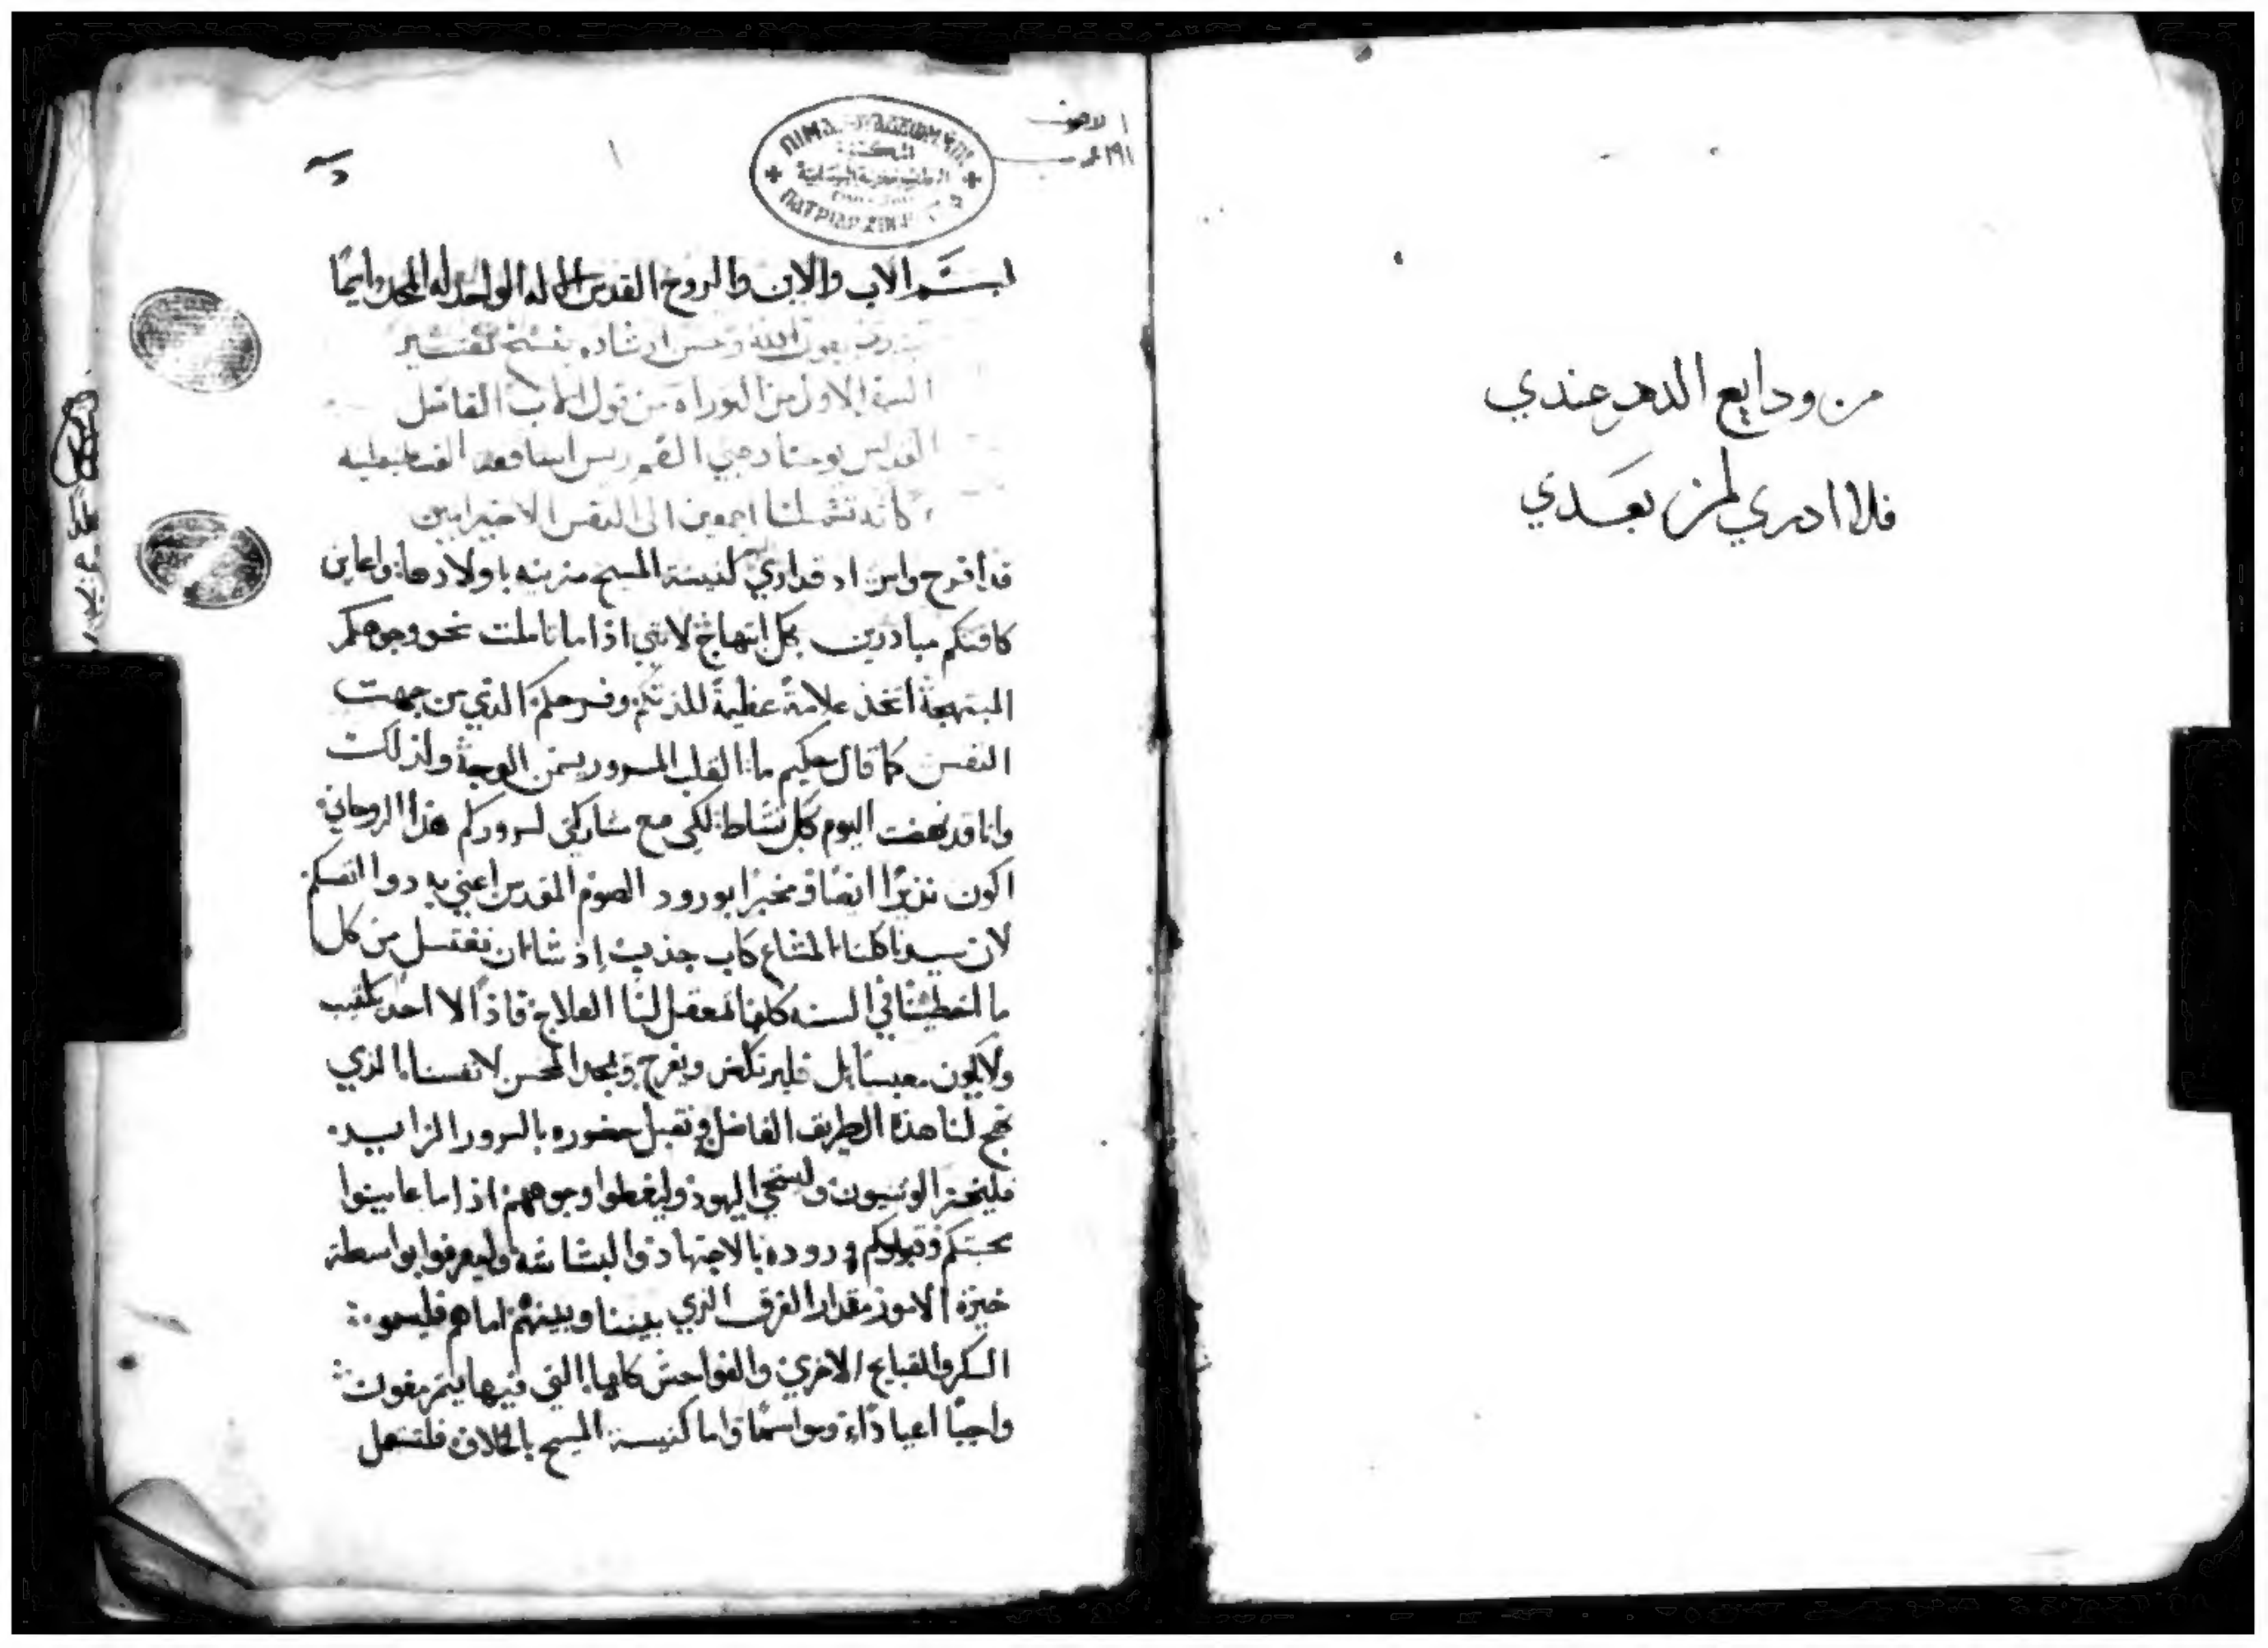 من ودايع الدهر عندي
فلا ادري لمن بعدي
١ لاهوت
بسم الاب والابن والروح القدس الاله الواحد له المجد دايما
بعون الله وحسن ارشاده بنسخ تفسير
السفر الاول من التوراه من قول الاب الفاضل
القديس يوحنا دهبي الفم ريس اساقفه القسطنطينيه
تشملنا اجمعين الى النفس الاخير امين
قد افرح وابتهج اذ قد اري كنيسة المسيح مزينه باولادها واعاين
كافتكم مبادرين بكل ابتهاج لانني اذا ما تاملت نحو وجوهكم
المبتهجة اتخذ علامة عظيمة للذتكم وفرحكم الذي من جهت
النفس كما قال حكيم ما القلب المسرور يسمن الوجه ولذلك
وانا قد نهضت اليوم بكل نشاط لكي مع مشاركتي لسروركم هذا الروحاني
اكون نذيرًا ايضًا ومخبرًا بورود الصوم المقدس اعني به دوا انفسكم
لان سيدنا كلنا المشاع كاب جذب اذ شا ان نغتسل من كل
ما اخطيناه في السنه كلها فعقل لنا العلاج فاذًا لا احد يكتيب
ولا يكون معبسًا بل فليرتكض ويفرح ويمجد المحسن لانفسنا الذي
نهج لنا هذه الطريق الفاضل ونقبل حضوره بالسرور الزايد
فليخز الوثنيون وليستحي اليهود وليغطوا وجوههم اذا ما عاينوا
محبتكم وقبولكم وروده بالاجتهاد والبشاشه وليعرفوا بواسطة
خبرة الامور مقدار الفرق الذي بيننا وبينهم اما هم فليسمو
السكر والقبايح الاخري والفواحش كلها التي فيها يتمرغون
واجبًا اعيادًا ومواسمًا واما كنيسة المسيح بالخلاف فلتستعمل